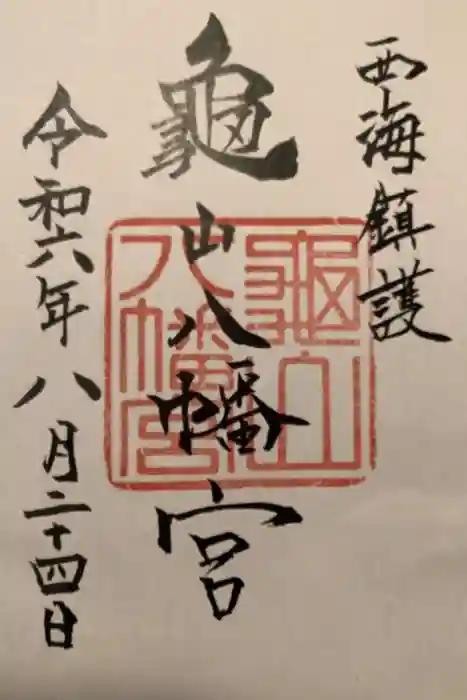 西海鎮護
龜山八幡宮
龜山
八幡宮
令和六年八月二十四日